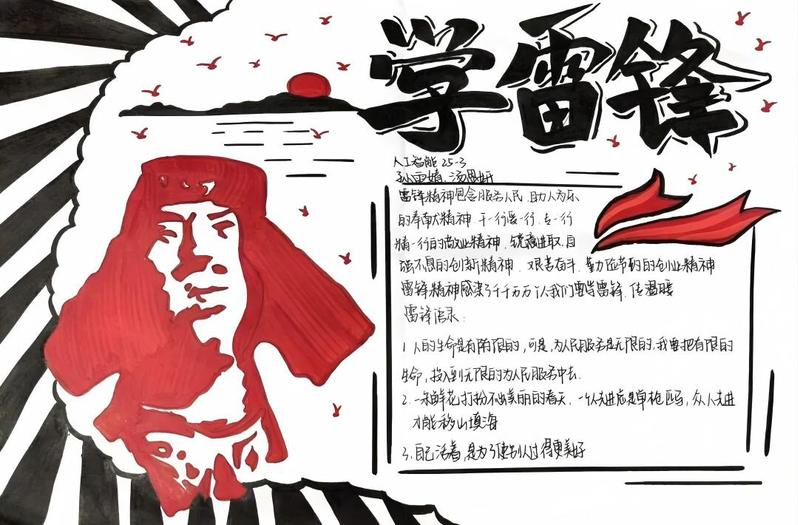 学雷锋
人工智能 25-3
雷锋精神包含服务人民、助人为乐
的奉献精神、干一行爱一行、专一行
精一行的敬业精神、锐意进取、自
强不息的创新精神、艰苦奋斗、勤力
节约的创业精神
雷锋精神感染了千千万万 我们要学雷锋、传温暖
雷锋语录:
1.人的生命是有限的,可是,为人民服务是无限的,我要把有限的
生命,投入到无限的为人民服务中去.
2.一朵鲜花打扮不出美丽的春天,一个人先进总是单枪匹马,众人先进
才能移山填海
3.自己活着,是为了使别人过得更美好